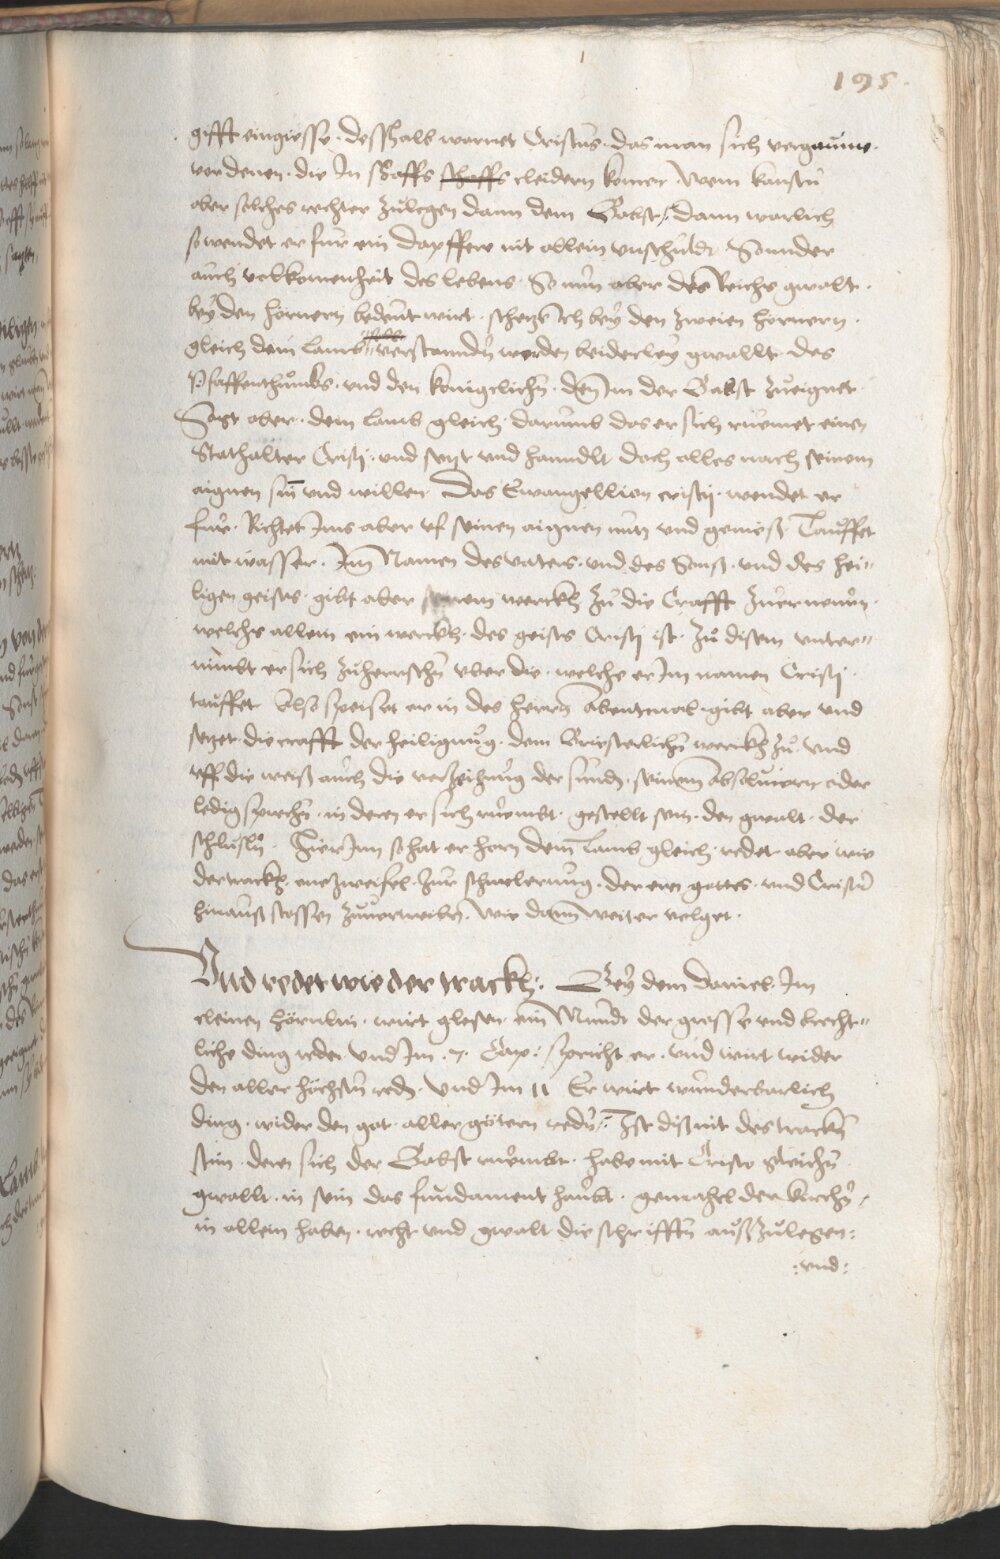 195
gifft eingiesse. desshalb warnet Cristus. das man sich vergaume.
vor denen. die In schaffs schaffs cleidern komen. Wem kanstu
aber solches rechter zulegen dann dem Babst / dann warlich
so wendet er fur ein dapffere nit allein unschuldt. Sonnder
auch volkomenheit des lebens. So nun aber des Reichs gwalt.
bey den hornern bedeut wirt. schetz Ich bey den zweien hornern.
gleich dem lamb verstanndn werden beiderley gwallt. des
Pfaffenthumbs. und den konigclichn. den Im der Babst zueignet.
Sagt aber. dem lamb gleich. darumb das er sich ruemet einen
Stathalter Cristj. und setzt und hanndlt doch alles nach seinem
aignen sin und willen. Das Ewangellion cristj. wendet er
fur. Richtet Ims aber uf seinen aignen nutz und genieß. Tauffet
mit wasser. Im Namen des vaters. und des Sonß. und des hei"
ligen geists. gibt aber seinem werckh zu die Crafft zuernewrn.
welchs allein ein werckh. des geists Cristj ist. Zu disem unter"
nimbt er sich zuherrschn uber die. welche er Im namen Cristj.
tauffet. Also speiset er in des herrn Abentmal. gibt aber und
setzet die crafft der heiligung. dem Briesterlichn werckh zu. und
uff die weiß auch die verzeihung der sunden. seinem absolvieren oder
ledig sprechn. in deren er sich ruembt. gestellt sein. den gwalt. der
schlusln. Hier Inn so hat er horn dem Lamb gleich. redet aber wie
der trackh. one zweifel. zur schmelerung. der eren gottes. und Cristu
hinauß stossen zuvertreibn. Wie dann weiter volget.
Und redet wie der trackh: Bey dem Daniel. Im
cleinen hörnlin. wirt glesen. ein Mundt der grosse und brecht"
liche ding redet. Und Im .7. Cap: spricht er. und wirt wider
den aller höchsten reden. Und Im 11 Er wirt wunderbarlich
ding. wider den got. aller götern redn /: Ist diß nit des trackn
stim. deren sich der Babst ruembt. habe mit Cristo gleichn
gwallt. in sein das fundament haubt. gemahel der kirchn /
in allem haben. recht und gwalt die schrifftn auß zulegen:
:und: